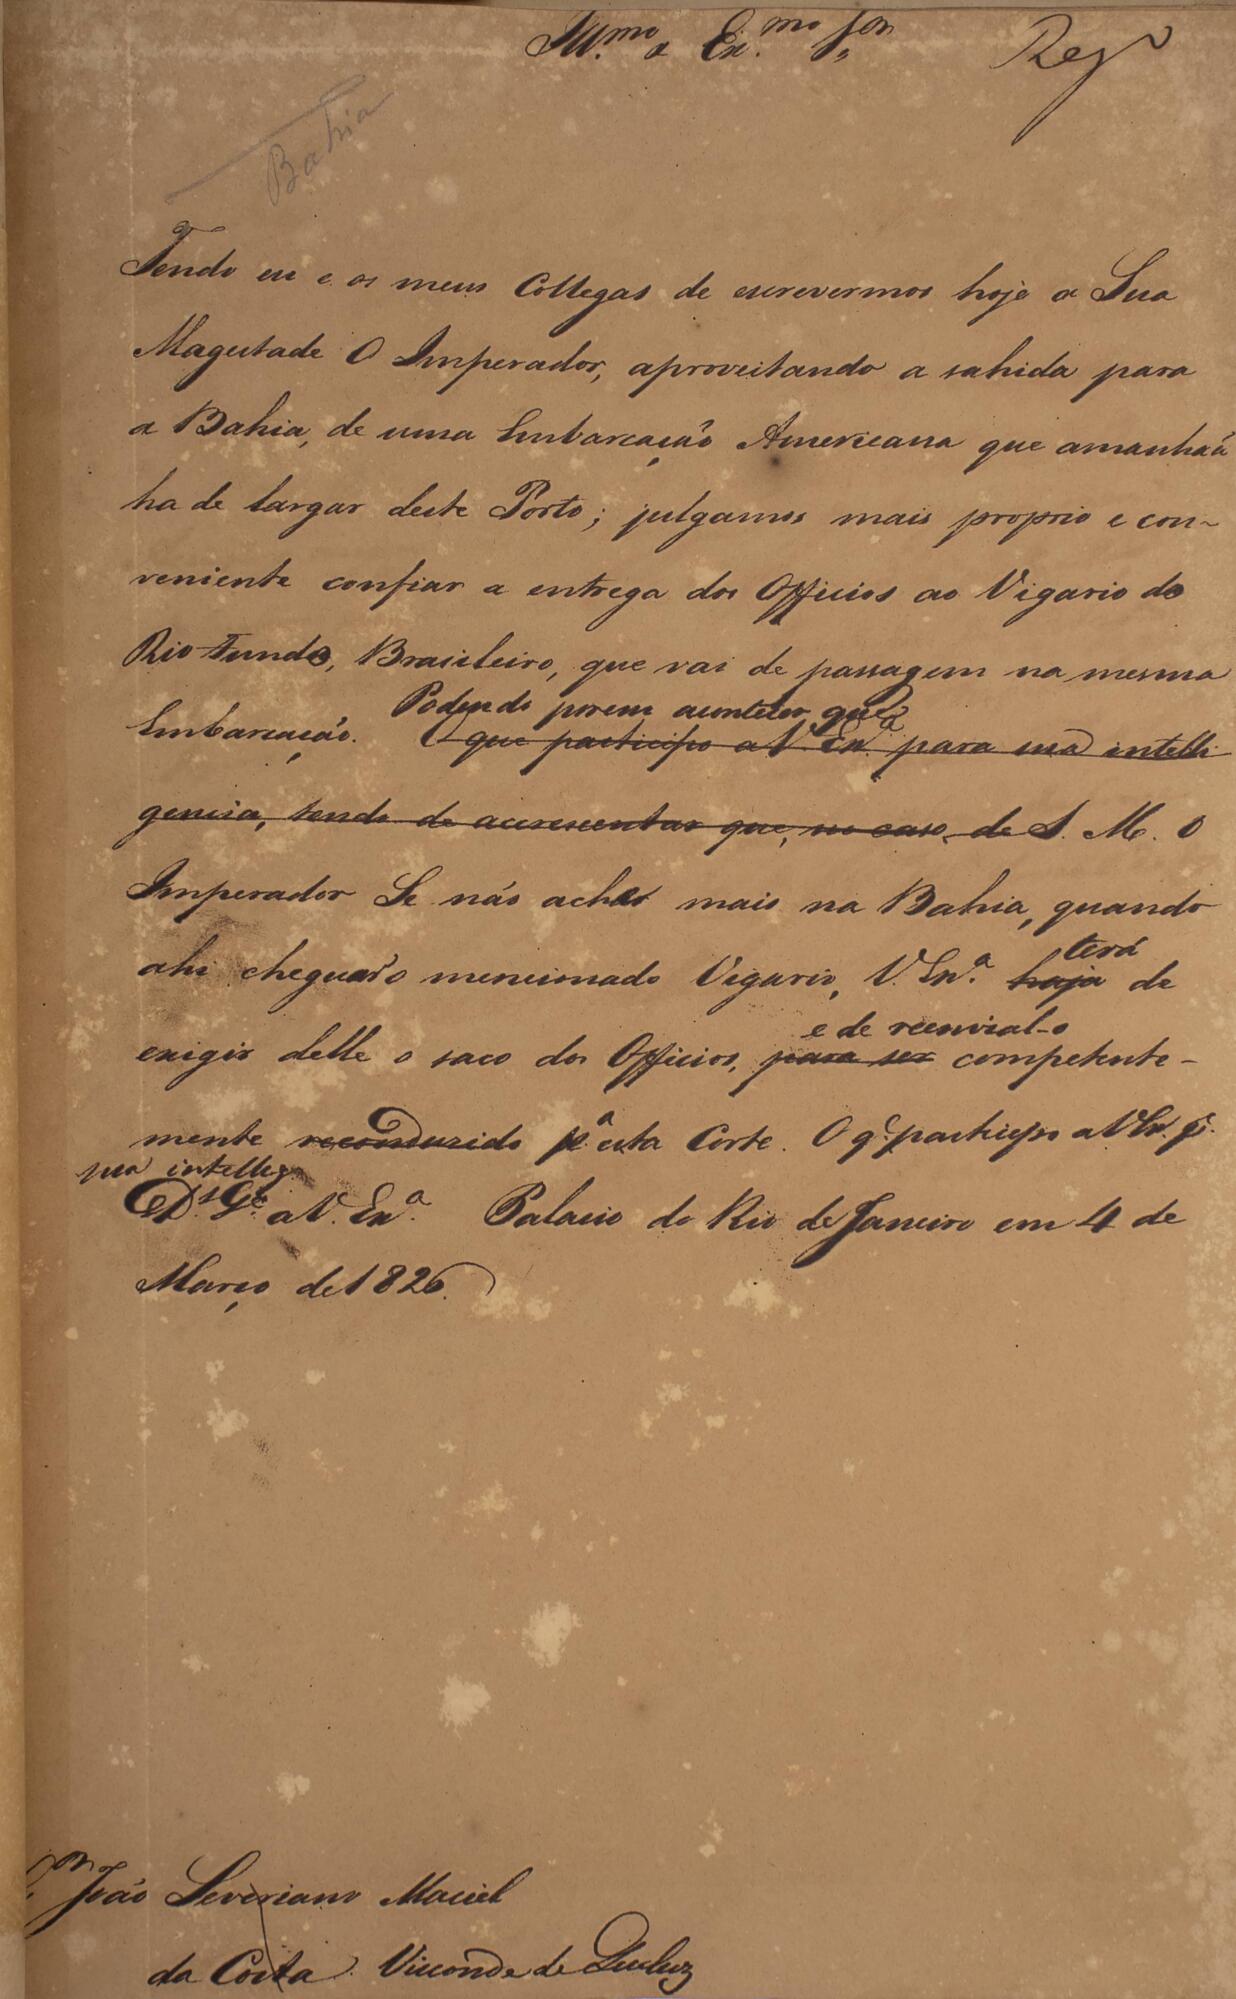 Ill.mo e Ex.mo Snr
Reg.o
Bahia
Tendo eu e os meus Collegas de escrevermos hoje a Sua
Magestade O Imperador, aproveitando a sahida para
a Bahia, de uma Embarcação Americana que amanhaã
ha de largar deste Porto; julgamos mais proprio e con-
veniente confiar a entrega dos Officios ao Vigario do
Rio Fundo, Brasileiro, que vai de passagem na mesma
Podendo porem acontecer que
Embarcação. O que participo a V. Ex.a para sua intelli
gencia, tendo de accrescentar que, no caso, de S. M. O
Imperador Se não achar mais na Bahia, quando
terá
ahi chegar o mencionado Vigario, V. Ex.a haja de
e de reenvial-o
exigir delle o saco dos Officios, para ser competente-
mente reconduzido p.a esta Corte. O q.e participo a V. Ex. p.a
sua intellig.
D.s G.e a V. Ex.a Palacio do Rio de Janeiro em 4 de
Março de 1826.
João Severiano Maciel
da Costa. Visconde de Queluz